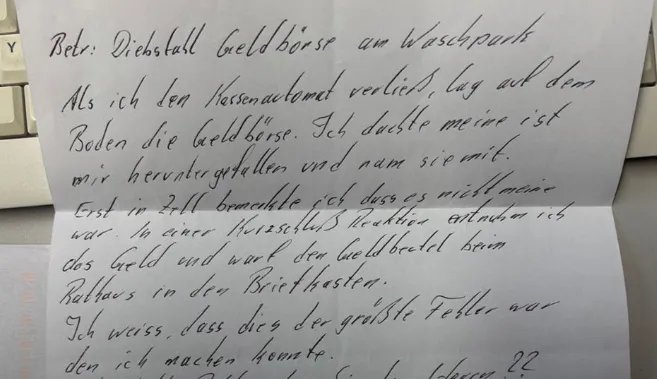 Betr: Diebstahl Geldbörse am Waschpark
Als ich den Kassenautomat verließ, lag auf dem
Boden die Geldbörse. Ich dachte meine ist
mir heruntergefallen und nam sie mit.
Erst in Zell bemerkte ich dass es nicht meine
war. In einer Kurzschluß Reaktion entnahm ich
das Geld und warf den Geldbeutel beim
Rathaus in den Briefkasten.
Ich weiss, dass dies der größte Fehler war
den ich machen konnte.
??
Y